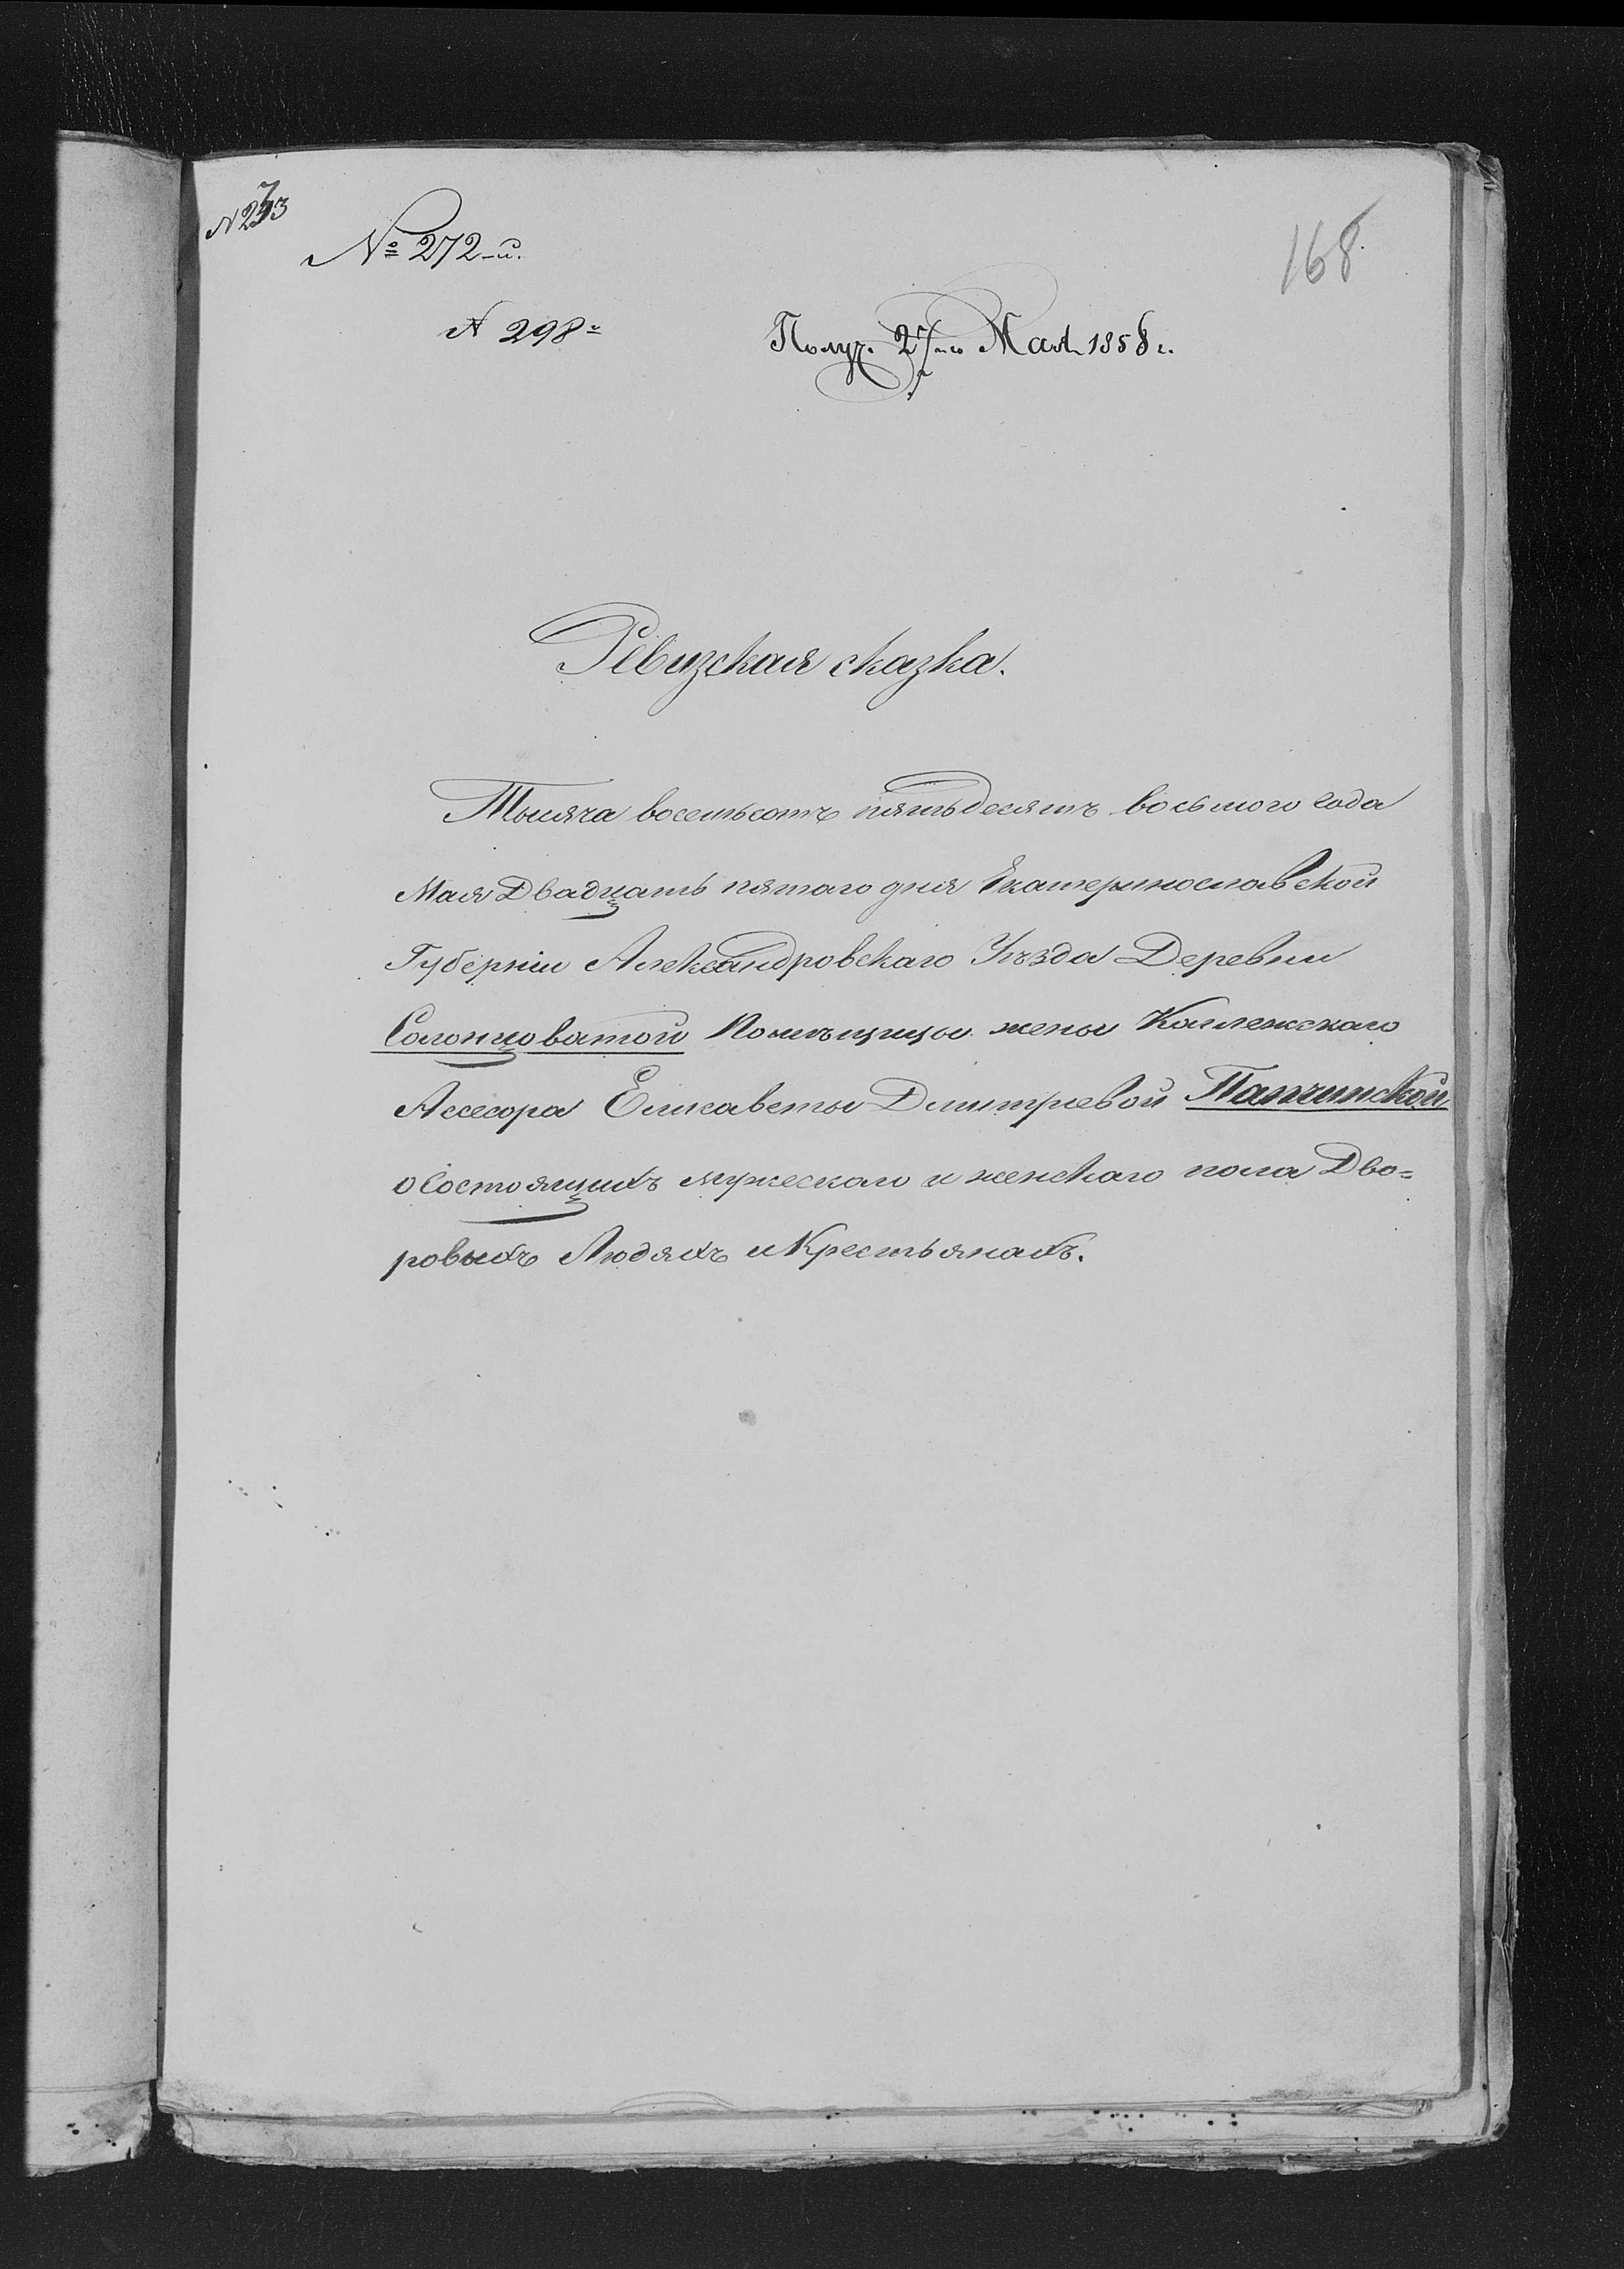 № 272-й.
168
№ 298й
Получ. 27го Мая 1858 г.
Ревизская сказка.
Тысяча восемьсотъ пятьдесятъ восьмого года
Мая Двадцать пятаго дня Екатеринославской
Губерніи Александровскаго Уѣзда Деревни
Солонцоватой Помѣщицы жены Коллежскаго
Ассесора Елисаветы Дмитріевой
о состоящихъ мужескаго и женскаго пола Дво=
ровыхъ Людяхъ и Крестьянахъ.